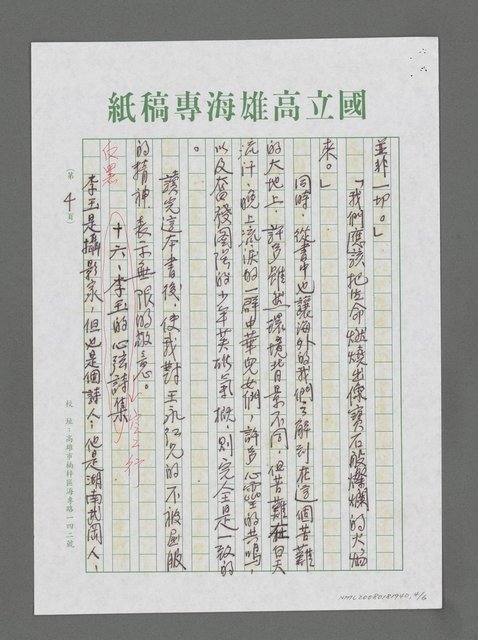 國立高雄海專稿紙
並非一切。」
「我們應該把生命燃燒出像寶石般燦爛的火焰
來。」
同時，從書中也讓海外的我們了解到在這個苦難
的大地上，許多雖然環境背景不同，但苦難在白天
流汗、晚上流淚的一群中華兒女們，許多心靈的共鳴，
以及奮發圖強的少年英雄氣概，則完全是一致的
。
讀完這本書後，使我對王永紅兄的不被屈服
的精神表示無限的敬意。
十六、李玉的心弦詩集
李玉是攝影家，但也是個詩人；他是湖南武岡人，
（第4頁）
校址：高雄市楠梓區海專路一四二號
NMTL20080181940, 4/6